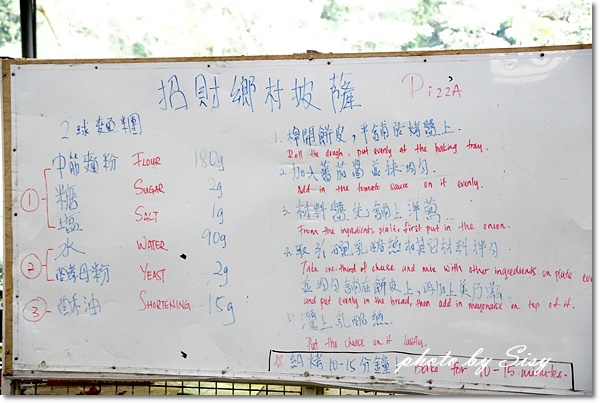 招財鄉村披薩 PizzA
2球麵糰
中筋麵粉 FLOUR 180g
① 糖 SUGAR 2g
鹽 SALT 1g
水 WATER 90g
② 酵母粉 YEAST 2g
③ 酥油 SHORTENING 15g
1. 桿開餅皮，平鋪於烤盤上.
Roll the dough, put evenly at the baking tray.
2. 加入蕃茄醬並抹均勻.
Add in the tomato sauce on it evenly.
3. 材料盤先鋪上洋蔥
From the ingredients plate, first put in the onion.
Take one-third of cheese and mix with other ingredients on plate
並均勻鋪在餅皮上，再加上美乃滋
and put evenly in the bread, then add in mayonaise on top of it.
5. 灑上乳酪絲
Put the cheese on it lastly.
※ 烤10-15分鐘 bake for 10-15 minutes.
photo by Sisy